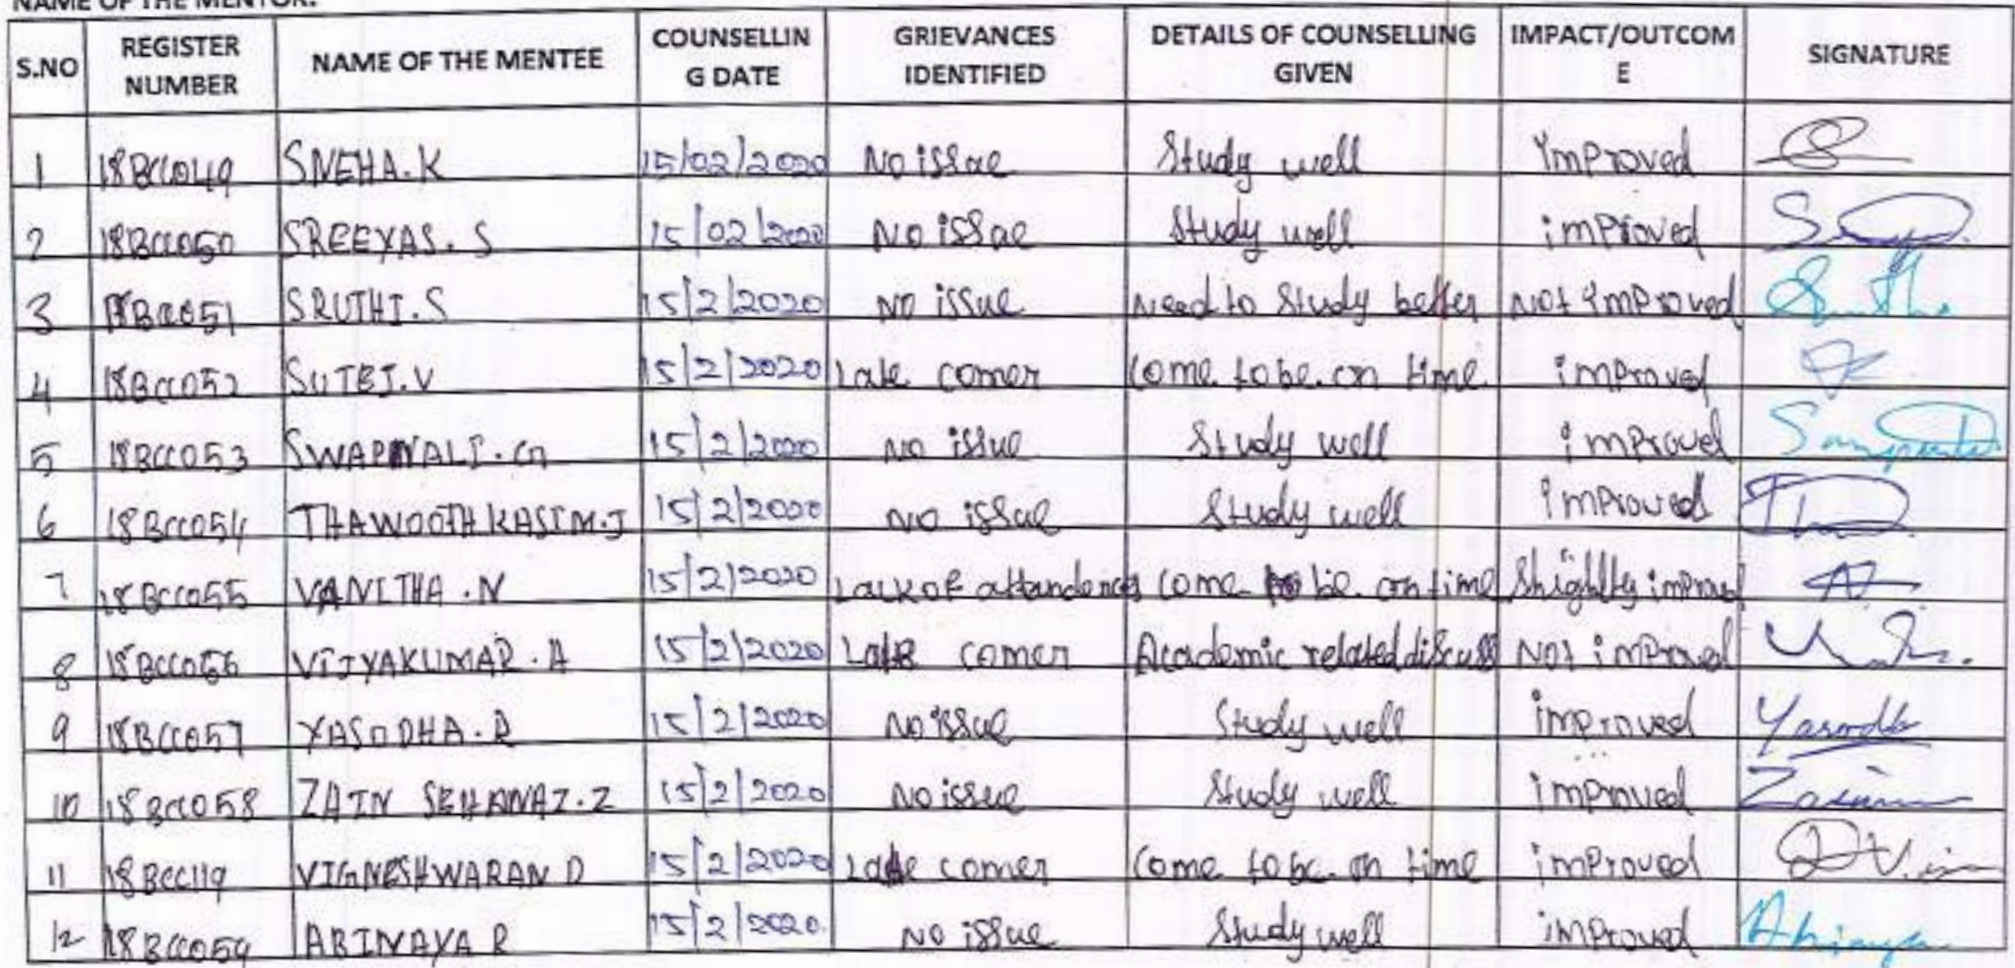 NAME OF THE MENTOR:
S.NO REGISTER NUMBER NAME OF THE MENTEE COUNSELLIN G DATE GRIEVANCES IDENTIFIED DETAILS OF COUNSELLING GIVEN IMPACT/OUTCOM E SIGNATURE
1 18BCC049 SNEHA.K 15/02/2020 No issue Study well Improved
2 18BCC050 SREEYAS.S 15/02/2020 No issue Study well improved
3 18BCC051 SRUTHI.S 15/2/2020 No issue Need to Study better Not improved
4 18BCC052 SUJBI.V 15/2/2020 Late comer Come to be on time improved
5 18BCC053 15/2/2020 No issue Study well improved
6 18BCC054 THAWOOTH KASIM.J 15/2/2020 No issue Study well improved
7 18BCC055 VANITHA.N 15/2/2020 Lack of attandence Come to be on time Slightly improved
8 18BCC056 VIJYAKUMAR.A 15/2/2020 Late comer Academic related discuss Not improved
9 18BCC057 YASODHA.R 15/2/2020 No issue Study well improved Yasodha
10 18BCC058 ZAIN SEHANAZ.Z 15/2/2020 No issue Study well improved
11 18BCC119 VIGNESHWARAN D 15/2/2020 Late comer Come to be on time improved
12 18BCC059 ABINAYA R 15/2/2020 No issue Study well improved